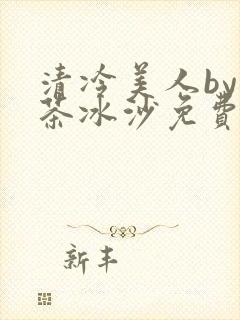 清冷美人by
茶冰沙免費
新丰